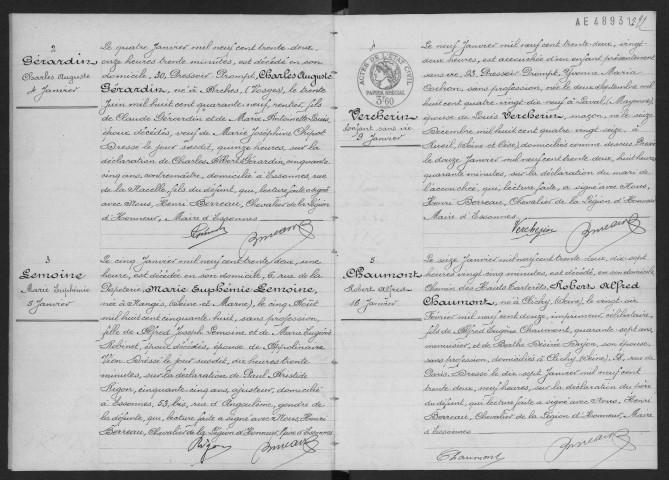 2
Gérardin
Charles Auguste
4 Janvier
Le quatre Janvier mil neuf cent trente deux,
onze heures trente minutes, est décédé en son
domicile, 30, Pressoir Prompt, Charles Auguste
Gérardin, né à Arches, (Vosges), le trente
Juin mil huit cent quarante neuf, rentier, fils
de Claude Gérardin et de Marie Antoinette Louis,
époux décédés, veuf de Marie Joséphine Chipot
Dressé le jour susdit, quinze heures, sur la
déclaration de Charles Albert Gérardin, cinquante
cinq ans, contremaître, domicilié à Essonnes, rue
de la Nacelle, fils du défunt, qui, lecture faite a signé
avec Nous, Henri Berreau, Chevalier de la Légion
d'Honneur, Maire d'Essonnes
3
Lemoine
Marie Euphémie
5 Janvier
Le cinq Janvier mil neuf cent trente deux, une
heure, est décédée en son domicile, 6, rue de la
Papeterie, Marie Euphémie Lemoine,
née à Nangis, (Seine et Marne), le cinq Août
mil huit cent cinquante huit, sans profession,
fille de Alfred Joseph Lemoine et de Marie Eugénie
Robinet, époux décédés, épouse de Appolinaire
Véon. Dressé le jour susdit, dix heures trente
minutes, sur la déclaration de Paul Aristide
Rigon, cinquante cinq ans, ajusteur, domicilié
à Essonnes, 53, bis, rue d'Angoulême, gendre de
la défunte, qui, lecture faite a signé avec Nous, Henri
Berreau, Chevalier de la Légion d'Honneur, Maire d'Essonnes
Rigon
AE48931
ACTES DE L'ETAT CIVIL
PAPIER SPECIAL
3F60
Vercherin
Enfant sans vie
9 Janvier
Le neuf Janvier mil neuf cent trente deux, vingt
deux heures, est accouchée d'un enfant présentement
sans vie, 23, Pressoir Prompt, Yvonne Maria
sans profession, née le deux septembre mil
huit cent quatre vingt dix neuf à Laval, (Mayenne),
épouse de Louis Vercherin, maçon, né le seize
Décembre mil huit cent quatre vingt seize, à
Rueil, (Seine et Oise), domiciliés comme dessus. Dressé
le douze Janvier mil neuf cent trente deux, huit heures
quarante minutes, sur la déclaration du mari de
l'accouchée, qui, lecture faite, a signé avec Nous,
Henri Berreau, Chevalier de la Légion d'Honneur
Maire d'Essonnes
Vercherin
5
Chaumont
Robert Alfred
16 Janvier
Le seize Janvier mil neuf cent trente deux, dix sept
heures vingt cinq minutes, est décédé, en son domicile
Chemin des Hauts Tarterêts, Robert Alfred
Chaumont, né à Clichy, (Seine), le vingt six
Février mil neuf cent douze, imprimeur, célibataire,
fils de Alfred Eugène Chaumont, quarante sept ans,
menuisier, et de Berthe Désirée Dajon, son épouse,
sans profession, domiciliés à Clichy, (Seine), 51, rue
de Paris. Dressé le dix sept Janvier mil neuf cent
trente deux, neuf heures, sur la déclaration du père
du défunt, qui, lecture faite a signé avec Nous, Henri
Berreau, Chevalier de la Légion d'Honneur, Maire
d'Essonnes
Chaumont